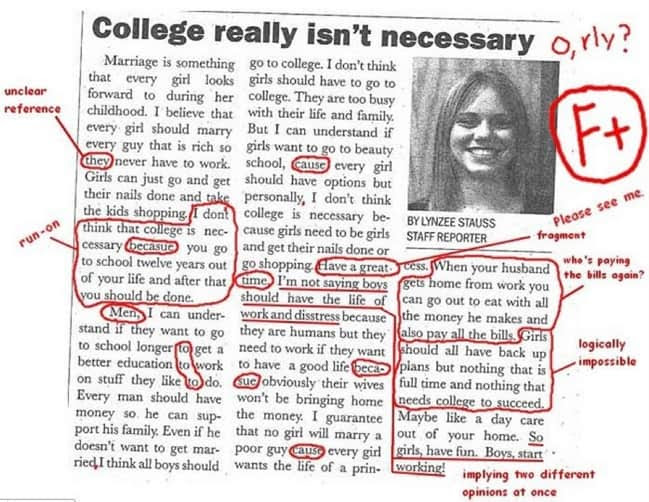 College really isn't necessary
o, rly?
F+
Please see me.
Marriage is something
that every girl looks
forward to during her
childhood. I believe that
every girl should marry
every guy that is rich so
they never have to work.
Girls can just go and get
their nails done and take
the kids shopping. I don't
think that college is nec-
cessary becasue you go
to school twelve years out
of your life and after that
you should be done.
Men, I can under-
stand if they want to go
to school longer to get a
better education to work
on stuff they like to do.
Every man should have
money so he can sup-
port his family. Even if he
doesn't want to get mar-
ried, I think all boys should
go to college. I don't think
girls should have to go to
college. They are too busy
with their life and family.
But I can understand if
girls want to go to beauty
school, cause every girl
should have options but
personally, I don't think
college is necessary be-
cause girls need to be girls
and get their nails done or
go shopping. Have a great
time I'm not saying boys
should have the life of
work and disstress because
they are humans but they
need to work if they want
to have a good life beca-
sue obviously their wives
won't be bringing home
the money. I guarantee
that no girl will marry a
poor guy cause every girl
wants the life of a prin-
BY LYNZEE STAUSS
STAFF REPORTER
cess. When your husband
gets home from work you
can go out to eat with all
the money he makes and
also pay all the bills. Girls
should all have back up
plans but nothing that is
full time and nothing that
needs college to succeed.
Maybe like a day care
out of your home. So
girls, have fun. Boys, start
working!
unclear
reference
run-on
fragment
who's paying
the bills again?
logically
impossible
implying two different
opinions at once